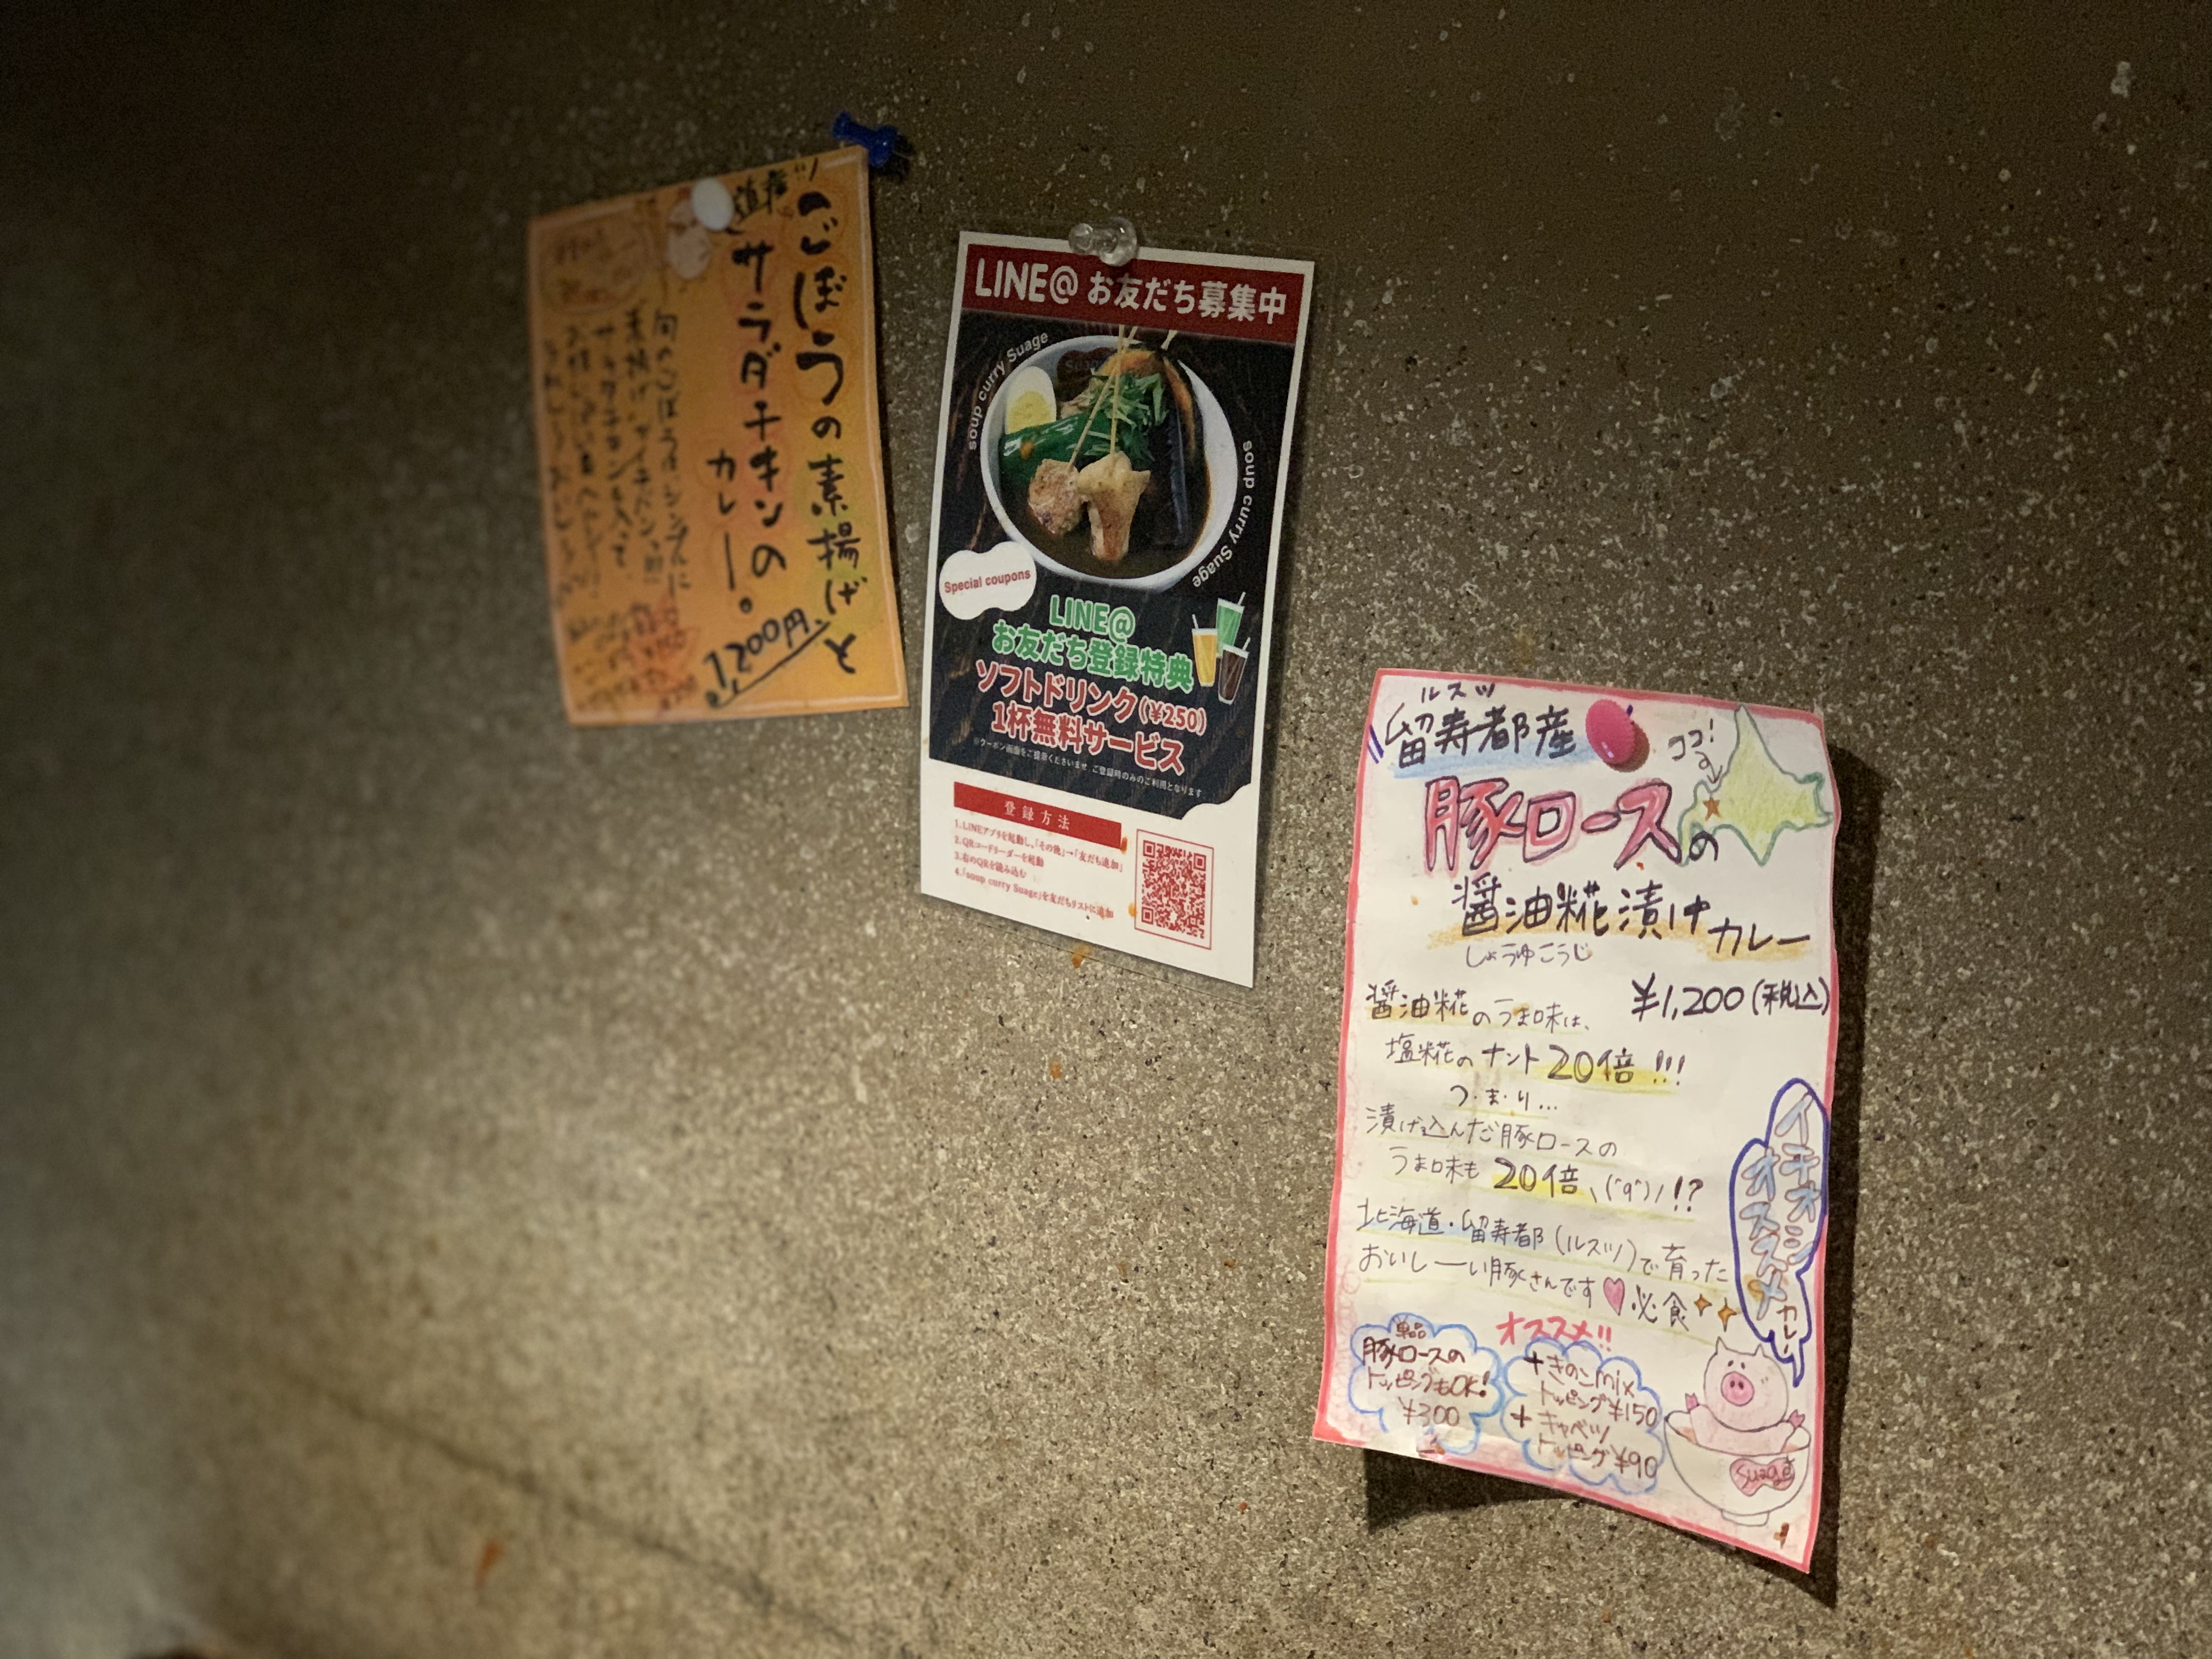 道産
ごぼうの素揚げと
サラダチキンの
カレー。
1,200円
旬のごぼうはシンプルに
LINE@ お友だち募集中
soup curry Suage
soup curry Suage
Special coupons
LINE@
お友だち登録特典
ソフトドリンク(¥250)
1杯無料サービス
※クーポン画面をご提示くださいませ ご登録時のみのご利用となります
登録方法
1.LINEアプリを起動し、「その他」→「友だち追加」
2.QRコードリーダーを起動
3.右のQRを読み込む
4.「soup curry Suage」を友だちリストに追加
ルスツ
留寿都産
ココ!
豚ロースの
醤油糀漬けカレー
しょうゆこうじ
¥1,200(税込)
醤油糀のうま味は、
塩糀のナント20倍!!!
つ・ま・り...
漬け込んだ豚ロースの
うま味も20倍、(°q°)/!?
北海道・留寿都(ルスツ)で育った
おいしーい豚さんです♡必食
イチオシ
オススメカレー
オススメ!!
単品
豚ロースの
トッピングもOK!
¥300
+きのこmix
トッピング¥150
+キャベツ
トッピング¥90
Suage